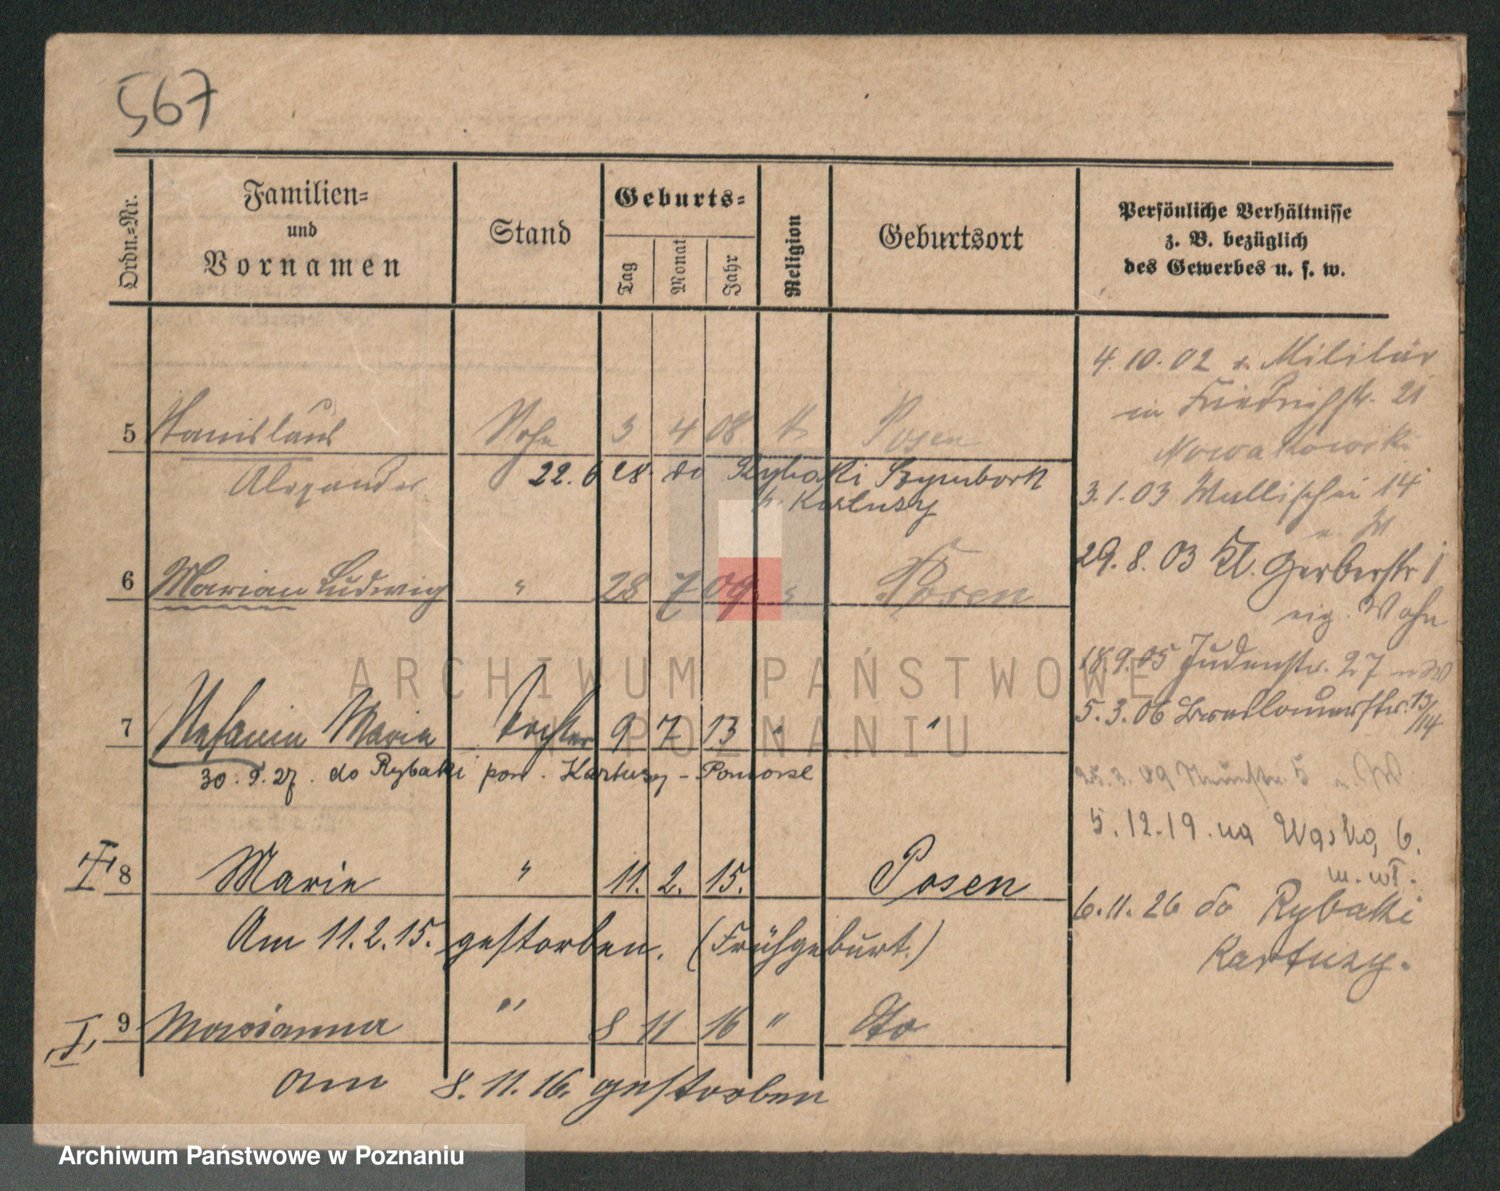 567
Ordn.-Nr.
Familien-
und
Vornamen
Stand
Geburts-
Tag
Monat
Jahr
Religion
Geburtsort
Persönliche Verhältnisse
z. B. bezüglich
des Gewerbes u. s. w.
5 Stanislaus Sohn 3 4 08 k Posen
Alexander
22.6 28 do Rybaki Szymbork
p. Kartuzy
6 Marian Ludwig " 28 7 09 " Posen
7 Stefania Maria Tochter 9 7 13 " "
30.9.27. do Rybaki pow. Kartuzy - Pomorze
8 Marie " 11. 2. 15. Posen
Am 11.2.15. gestorben. (Frühgeburt.)
9 Marianna " 8 11 16 " dto
am 8.11.16. gestorben
4.10.02 v. Militär
in Friedrichstr. 21
Nowakowski
3.1.03 Wallischei 14
29.8.03 Kl. Gerberstr 1
eig. Wohn
18.9.05 Judenstr. 27
5.3.06 Breslauerstr. 13/14
5.12.19. na Wąską 6.
m. wł.
6.11.26 do Rybaki
Kartuzy.
ARCHIWUM PAŃSTWOWE
W POZNANIU
Archiwum Państwowe w Poznaniu